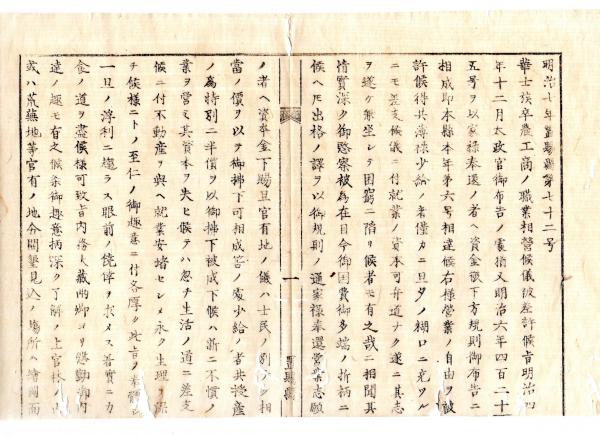 明治七年置賜縣第七十二号
華士族卒農工商ノ職業相營候儀被差許候旨明治四
年十二月太政官御布告ノ處猶又明治六年四百二十
五号ヲ以家禄奉還ノ者ヘ資金被下方規則御布告ニ
相成即本縣本年第六号相達候右様營業ノ自由ヲ被
許候得共薄禄少給ノ者僅カニ旦夕ノ糊口ニ充ツル
ニモ差支候儀ニ付就業ノ資本可弁道ナク遂ニ其志
ヲ遂ケ無坐シテ困窮ニ陥リ候者モ有之哉ニ相聞其
情實深ク御愍察被為在目今御国費御多端ノ折柄ニ
候ヘ圧出格ノ譯ヲ以御規則ノ通家禄奉還営業志願
一
置賜縣
ノ者ヘ資本金下賜且官有地ノ儀ハ士民ノ別ナク相
當ノ價ヲ以テ御拂下可相成筈ノ處少給ノ者共授産
ノ為特別ニ半價ヲ以御拂下被成下候ハ新ニ不慣ノ
業ヲ營又其資本ヲ失ヒ候テハ忽チ生活ノ道ニ差支
候ニ付不動産ヲ與ヘ就業安堵セシメ永ク生理ヲ保
チ候様ニトノ至仁ノ御趣意ニ付各厚ク此旨ヲ奉體
一旦ノ浮利ニ趨ラス眼前ノ僥倖ヲ求メス着實ニカ
食ノ道ヲ盡候様可致旨内務大藏両卿ヨリ懇諭御内
達ノ趣モ有之候条御趣意柄深ク了解ノ上官林ノ
或ハ荒蕪地等官有ノ地今開墾見込ノ場所ハ繪圖面